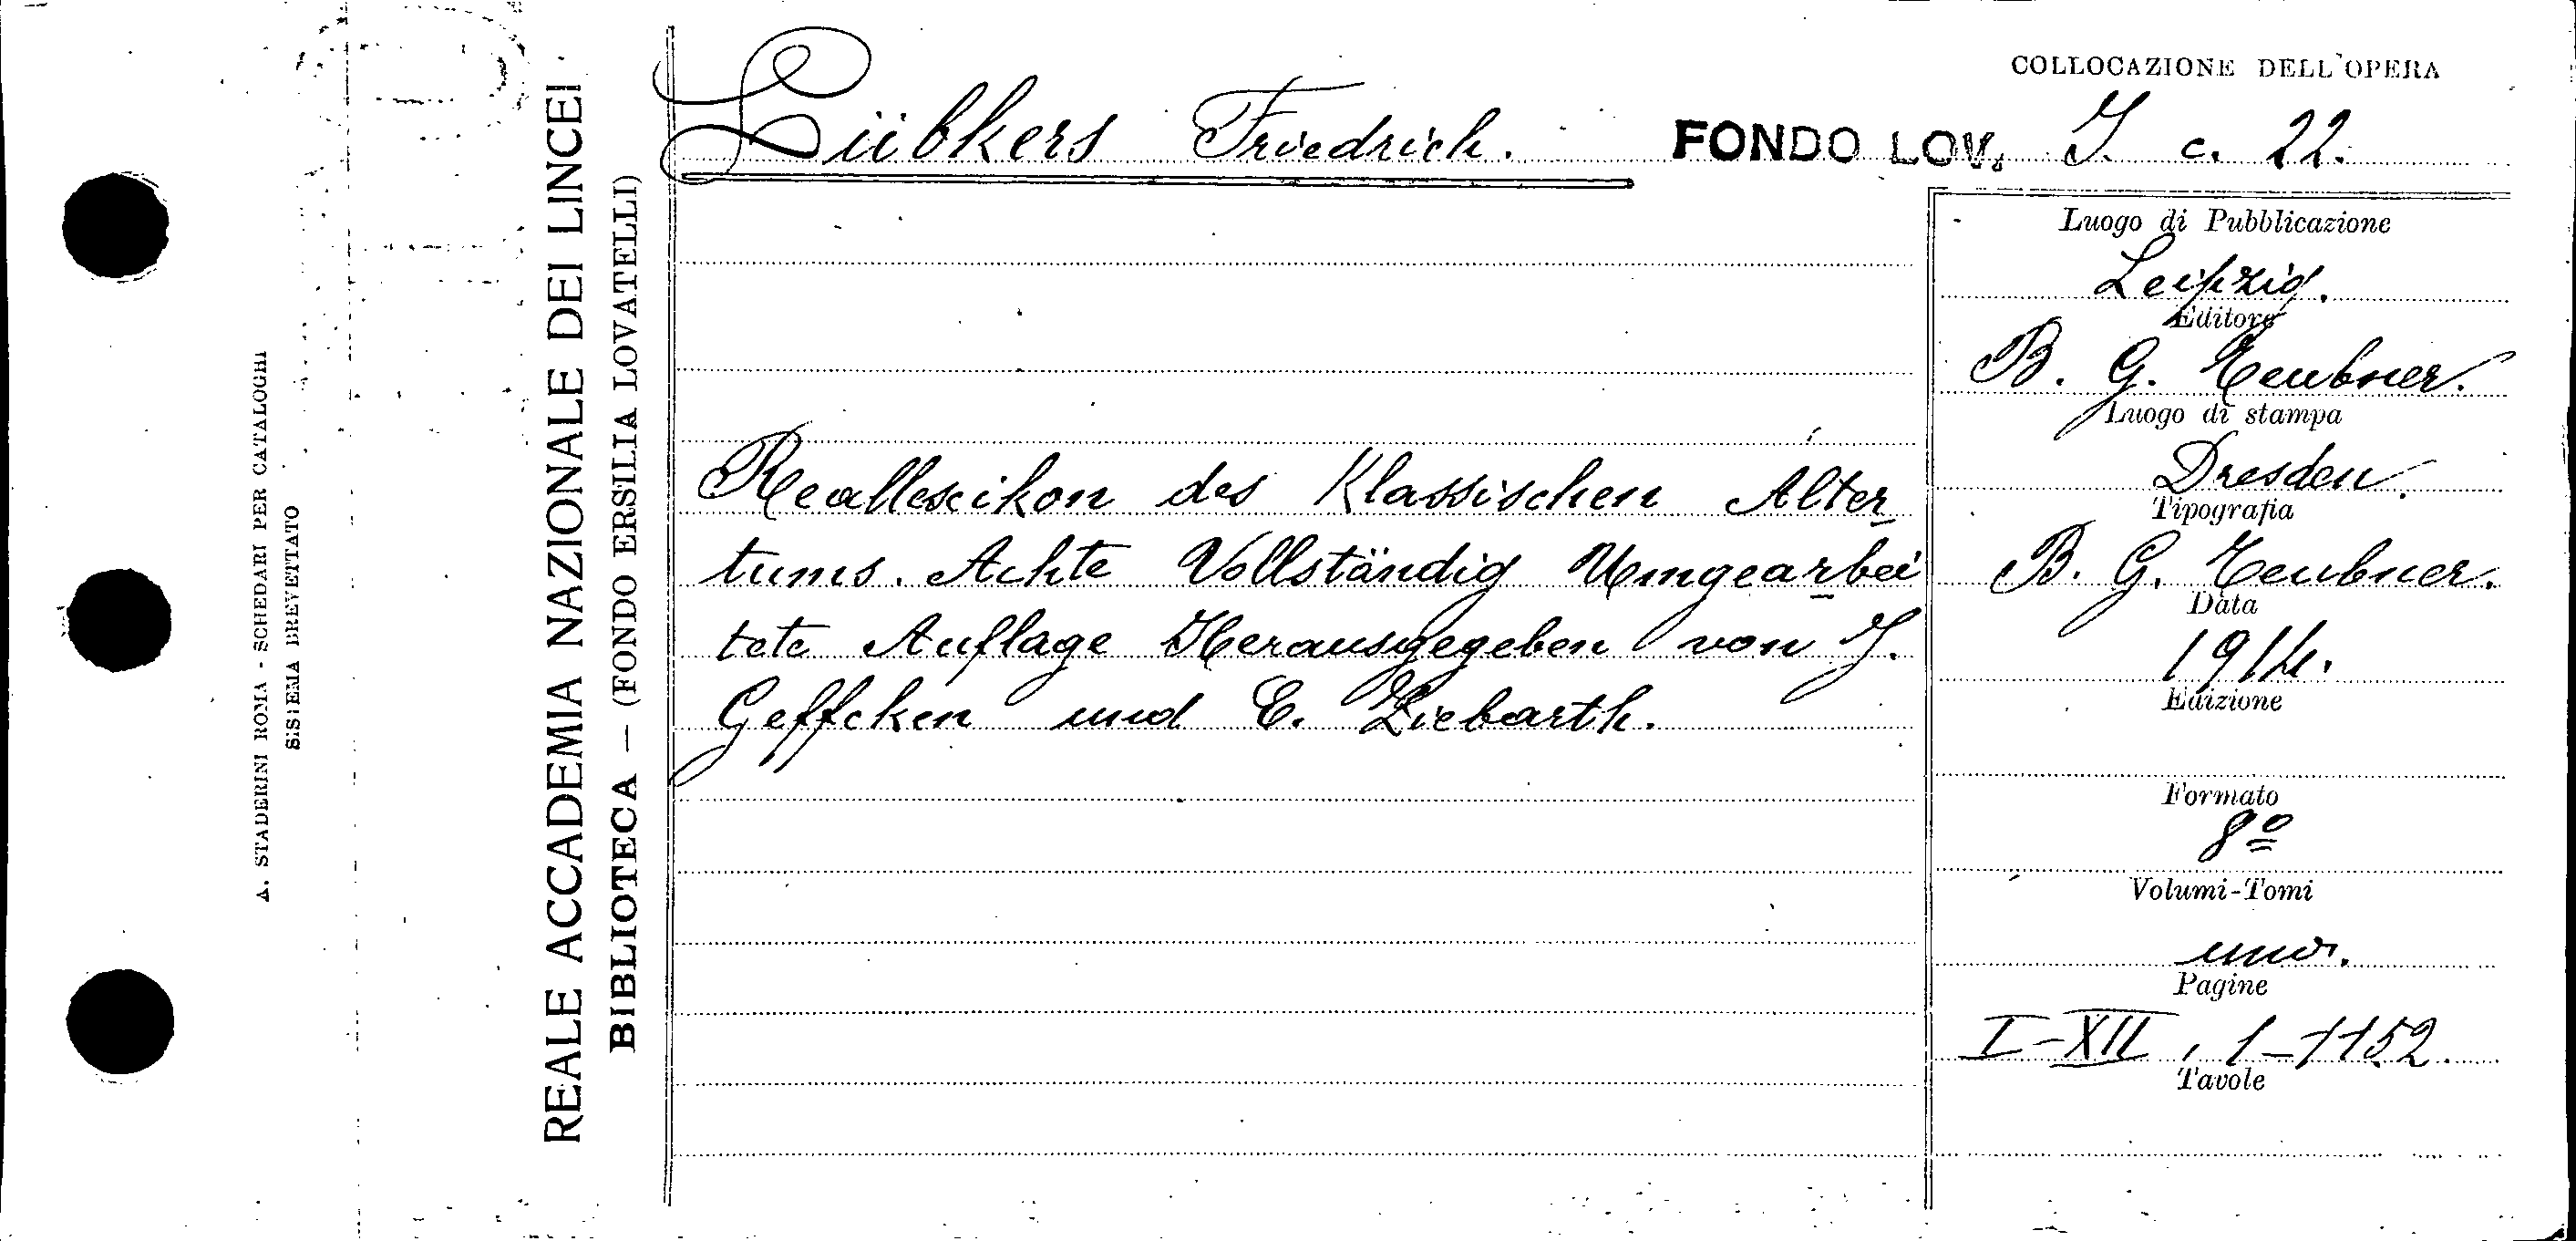 COLLOCAZIONE DELL'OPERA
Lübkers Friedrich.
FONDO LOV. I. c. 22.
Reallexikon des Klassischen Alter-
tums. Achte Vollständig Umgearbei-
tete Auflage Herausgegeben von J.
Geffcken und E. Ziebarth.
Luogo di Pubblicazione
Leipzig.
Editore
B. G. Teubner.
Luogo di stampa
Dresden.
Tipografia
B. G. Teubner.
Data
1914.
Edizione
Formato
8º
Volumi-Tomi
uno.
Pagine
I-XII, 1-1152.
Tavole
REALE ACCADEMIA NAZIONALE DEI LINCEI
BIBLIOTECA — (FONDO ERSILIA LOVATELLI)
A. STADERINI ROMA - SCHEDARI PER CATALOGHI
SISTEMA BREVETTATO